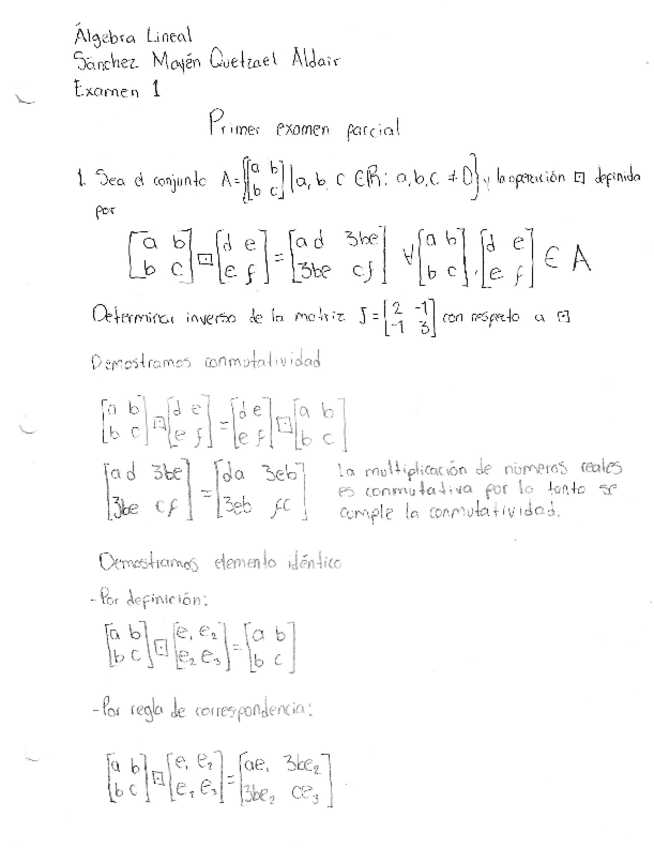 Álgebra Lineal
Sánchez Mayén Quetzael Aldair
Examen 1
Primer examen parcial
1. Sea el conjunto A={[a b; b c] | a, b, c ∈ ℝ; a,b,c ≠ 0} y la operación ⊡ definida
por
[a b; b c] ⊡ [d e; e f] = [ad 3be; 3be cf] ∀ [a b; b c], [d e; e f] ∈ A
Determinar inverso de la matriz J = [2 -1; -1 3] con respecto a ⊡
Demostramos conmutatividad
[a b; b c] ⊡ [d e; e f] = [d e; e f] ⊡ [a b; b c]
[ad 3be; 3be cf] = [da 3eb; 3eb fc] La multiplicación de números reales
es conmutativa por lo tanto se
cumple la conmutatividad.
Demostramos elemento idéntico
-Por definición:
[a b; b c] ⊡ [e₁ e₂; e₂ e₃] = [a b; b c]
-Por regla de correspondencia:
[a b; b c] ⊡ [e₁ e₂; e₂ e₃] = [ae₁ 3be₂; 3be₂ ce₃]